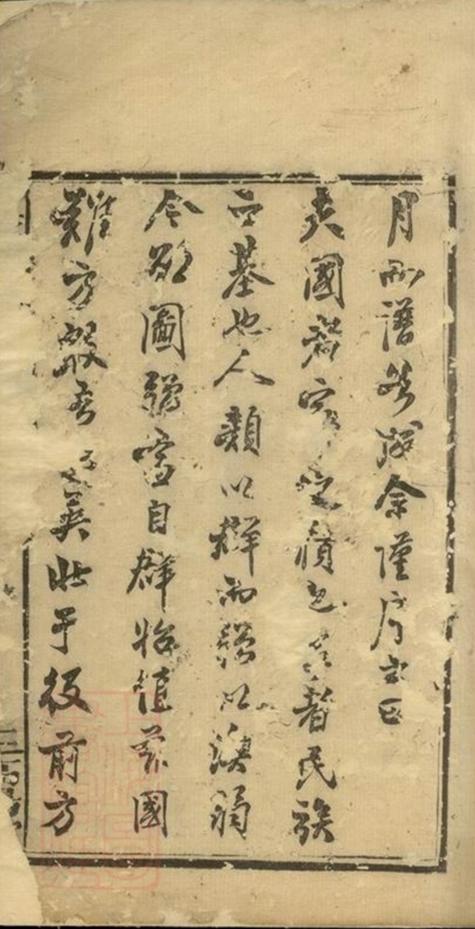 月而譜告成余謹序之曰
夫國者家之積也家者民族
之基也人類以群而強以渙弱
今欲圖強當自群始值茲國
難方殷吾英壯于役前方